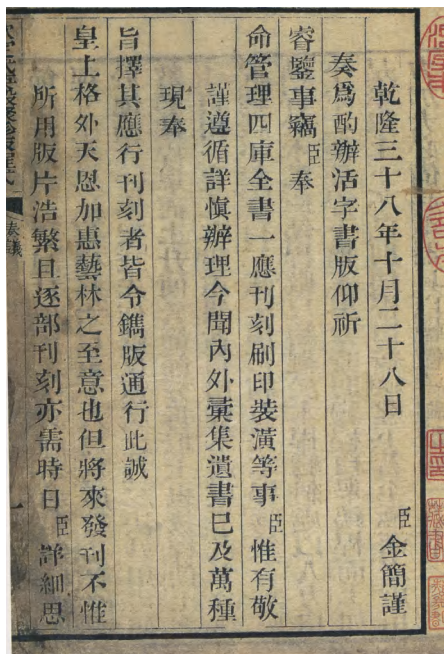 乾隆三十八年十月二十八日臣金簡謹
奏爲酌辦活字書版仰祈
睿鑒事竊臣奉
命管理四庫全書一應刊刻刷印裝潢等事臣惟有敬
謹遵循詳愼辦理今聞內外彙集遺書已及萬種
現奉
旨擇其應行刊刻者皆令鐫版通行此誠
皇上格外天恩加惠藝林之至意也但將來發刊不惟
所用版片浩繁且逐部刊刻亦需時日臣詳細思
奏議